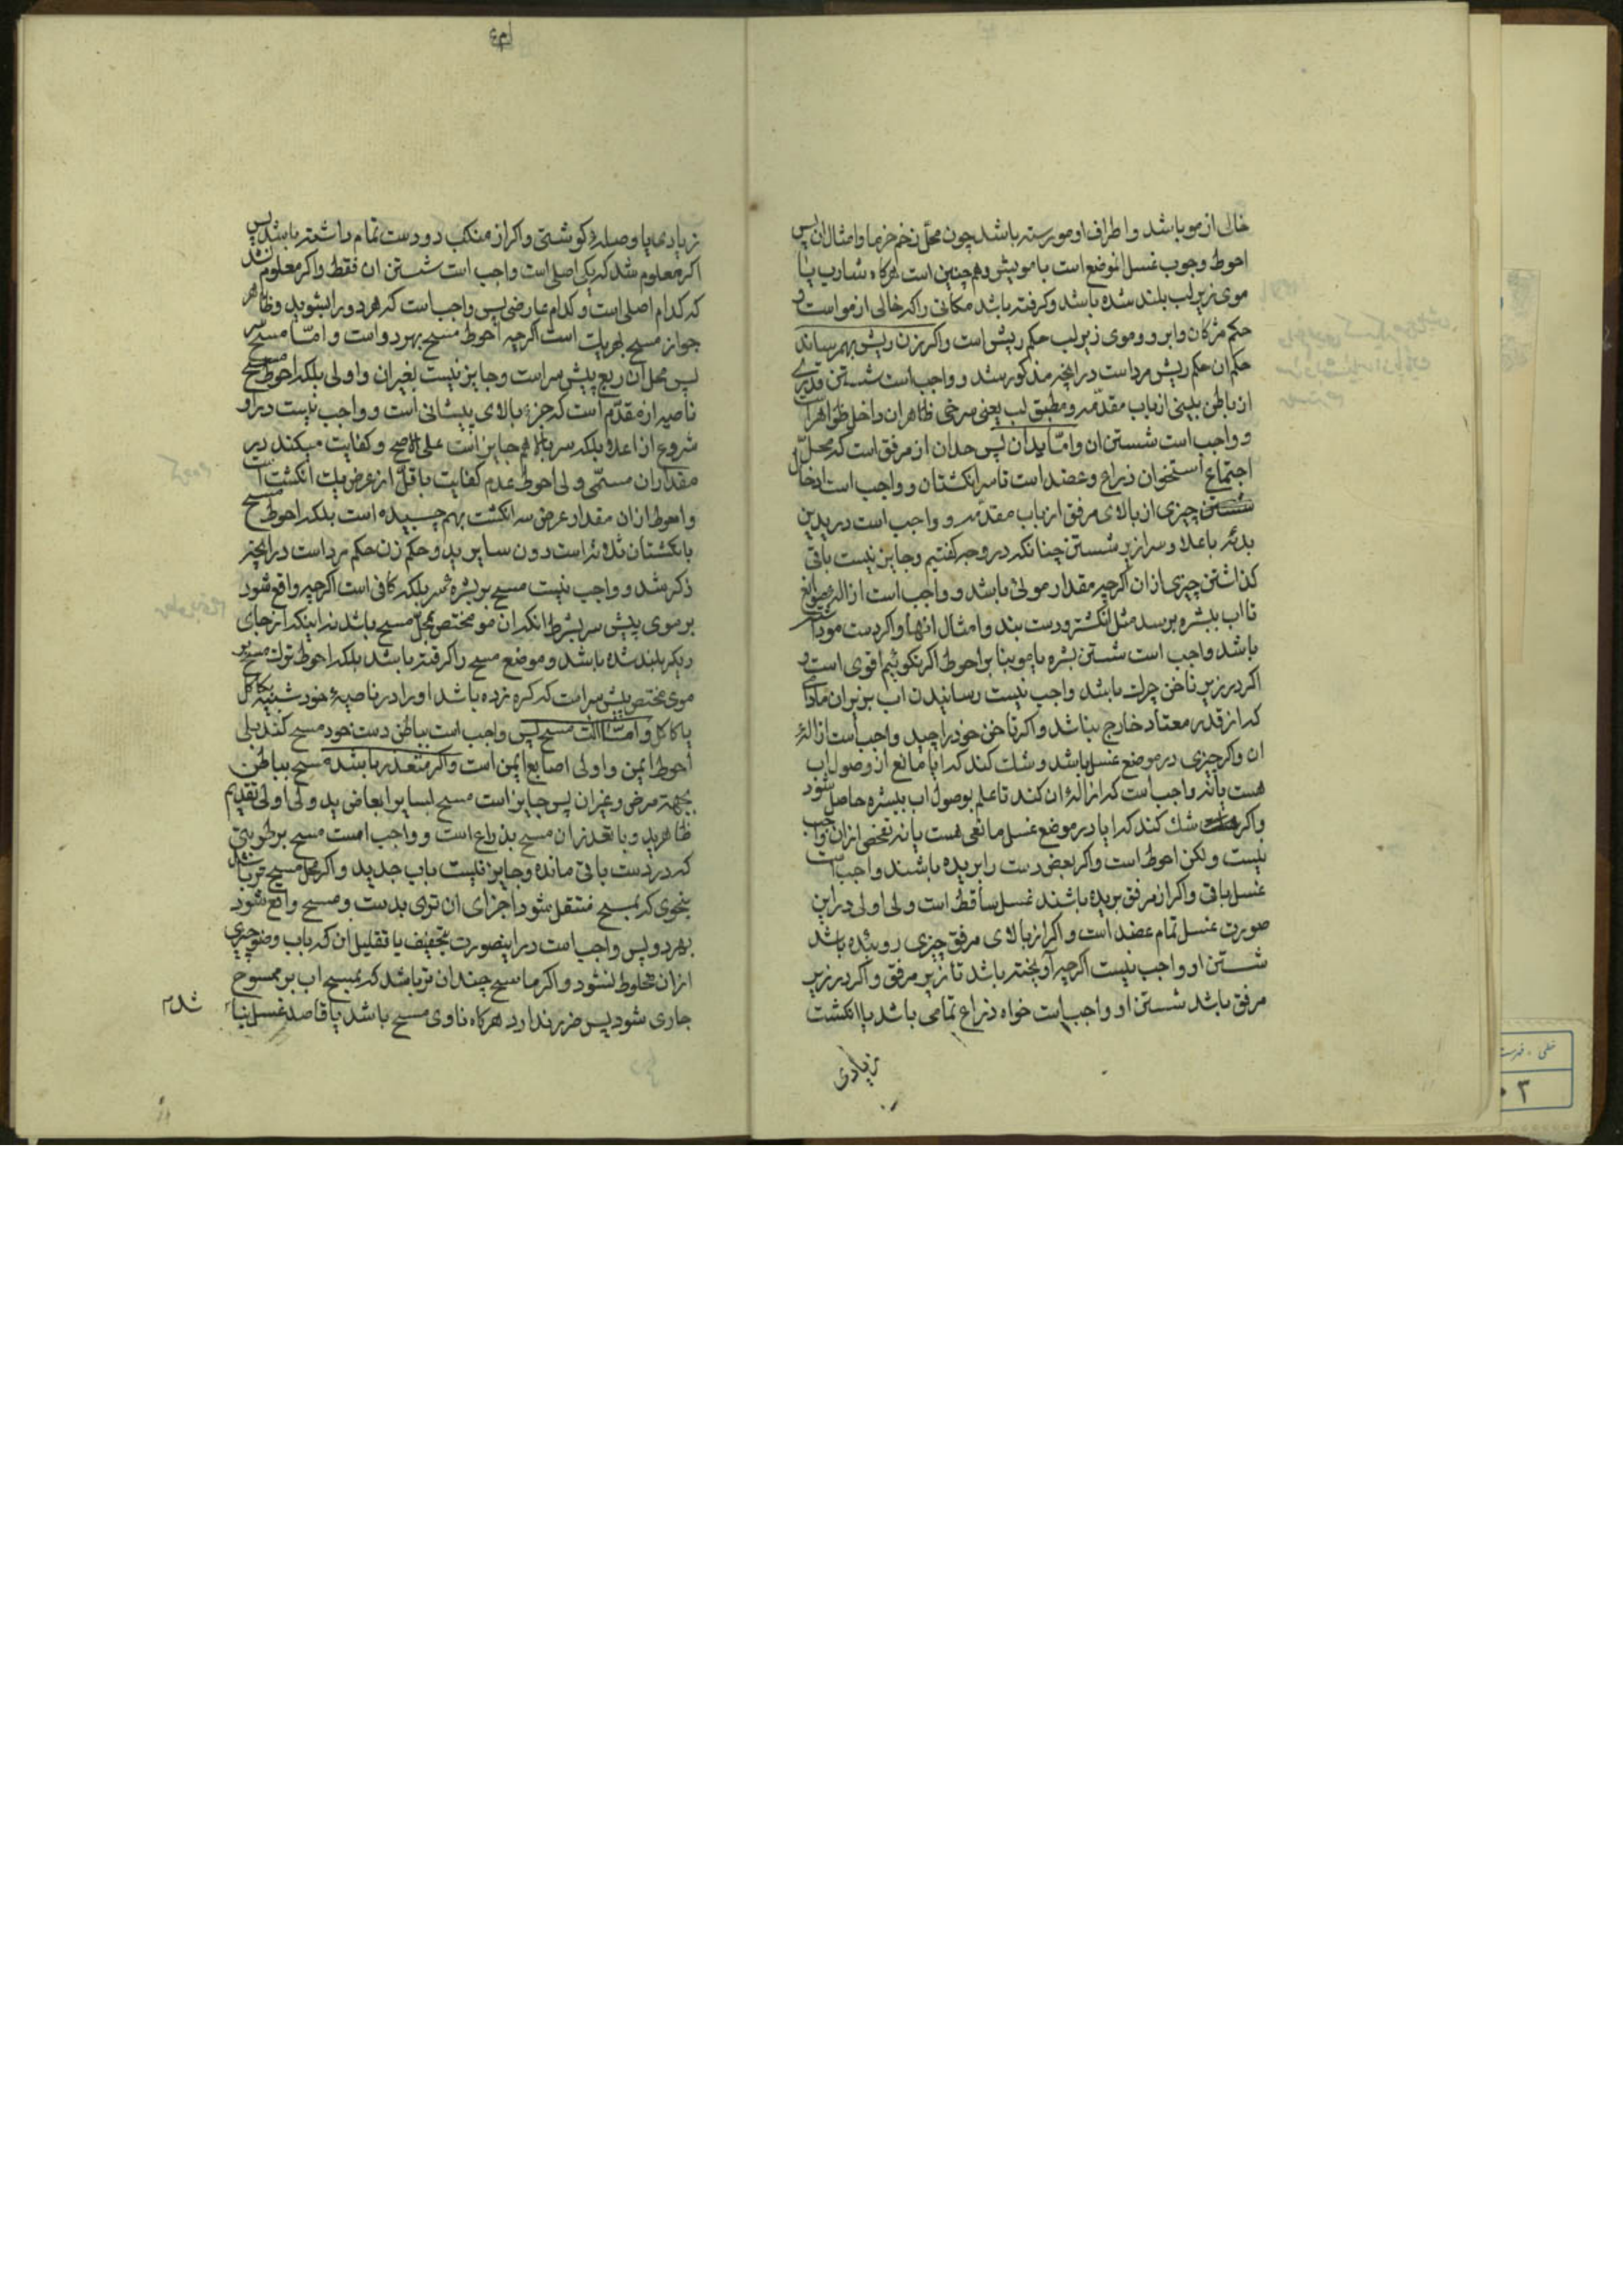 خالی از مو باشد و اطراف او مو رسته باشد چون محل زخم خرما و امثال ان پس
احوط وجوب غسل انموضع است با مویش و همچنین است هرکاه شارب یا
موی زیر لب بلند شده باشد و کرفته باشد مکانی را که خالی از مو است و
حکم مژکان و ابرو و موی زیر لب حکم ریش است و اکر زن ریش بهم رساند
حکم ان حکم ریش مرد است در انچه مذکور شد و واجب است شستن قدری
از باطن بینی از باب مقدمه و مطبق لب یعنی سرخی ظاهر ان داخل ظواهر است
و واجب است شستن ان و اما یدان پس حد ان از مرفق است که محل
اجتماع استخوان ذراع و عضد است تا سر انکشتان و واجب است ادخال
شستن چیزی از بالای مرفق از باب مقدمه و واجب است در یدین
بدئه باعلا و سرازیر شستن چنانکه در وجه کفتیم و جایز نیست باقی
کذاشتن چیزی از ان اکرچه مقدار موئی باشد و واجب است ازاله موانع
تا اب ببشره برسد مثل انکشتر و دست بند و امثال انها و اکر دست مودار
باشد واجب است شستن بشره با مو بنا بر احوط اکر نکوئیم اقوی است و
اکر در زیر ناخن چرک باشد واجب نیست رسانیدن اب بزیر ان مادامی
که از قدر معتاد خارج نباشد و اکر ناخن خود را چید واجب است ازالهٔ
ان و اکر چیزی در موضع غسل باشد و شک کند که ایا مانع از وصول اب
هست یا نه واجب است که ازالهٔ ان کند تا علم بوصول اب ببشره حاصل شود
و اکر شک کند که ایا در موضع غسل مانعی هست یا نه تفحص از ان واجب
نیست و لکن احوط است و اکر بعض دست را بریده باشند واجب است
غسل باقی و اکر از مرفق بریده باشند غسل ساقط است ولی اولی در این
صورت غسل تمام عضد است و اکر از بالای مرفق چیزی روئیده باشد
شستن او واجب نیست اکرچه آویخته باشد تا زیر مرفق و اکر در زیر
مرفق باشد شستن او واجب است خواه ذراع تمامی باشد یا انکشت
زیادی
زیادی یا وصلهٔ کوشتی و اکر از منکب دو دست تمام داشته باشد پس
اکر معلوم شد که یکی اصلی است واجب است شستن ان فقط و اکر معلوم نشد
که کدام اصلی است و کدام عارضی پس واجب است که هر دو را بشوید و ظاهر
جواز مسح بهر یک است اکرچه احوط مسح بهر دو است و اما مسح سر
پس محل ان ربع پیش سر است و جایز نیست بغیر ان و اولی بلکه احوط مسح
ناصیه از مقدم است که جزء بالای پیشانی است و واجب نیست در او
شروع از اعلا بلکه سربالا هم جایز است علی الاصح و کفایت میکند در
مقدار ان مسمی ولی احوط عدم کفایت باقل از عرض یک انکشت است
و احوط از ان مقدار عرض سه انکشت بهم چسبیده است بلکه احوط مسح
بانکشتان ثلاثه است دون سایر ید و حکم زن حکم مرد است در انچه
ذکر شد و واجب نیست مسح بر بشره سر بلکه کافی است اکرچه واقع شود
بر موی پیش سر بشرط انکه ان مو مختص بمحل مسح باشد نه اینکه از جای
دیکر بلند شده باشد و موضع مسح را کرفته باشد بلکه احوط ترک مسح بر
موی مختص پیش سر است که کره زده باشد او را در ناصیهٔ خود شبیه بکاکل
یا کاکل و اما الت مسح پس واجب است بباطن دست خود مسح کند بلی
احوط ایمن و اولی اصابع ایمن است و اکر متعذر باشد مسح بباطن
بجهة مرض و غیر ان پس جایز است مسح بسایر ابعاض ید ولی اولی تقدیم
ظاهر ید و با تعذر ان مسح بذراع است و واجب است مسح برطوبتی
که در دست باقی مانده و جایز نیست باب جدید و اکر محل مسح تر باشد
بنحوی که بمسح منتقل شود اجزای ان توی بدست و مسح واقع شود
بهر دو پس واجب است در اینصورت تجفیف یا تقلیل ان که باب وضو چیزی
از ان مخلوط نشود و اکر ماسح چندان تر باشد که بمسح اب بر ممسوح
جاری شود پس ضرر ندارد هرکاه ناوی مسح باشد یا قاصد غسل نباشد